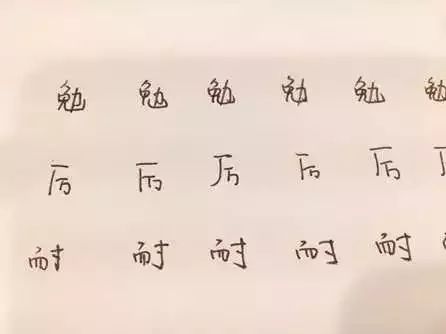 勉 勉 勉 勉 勉 勉
厉 厉 厉 厉 厉
耐 耐 耐 耐 耐